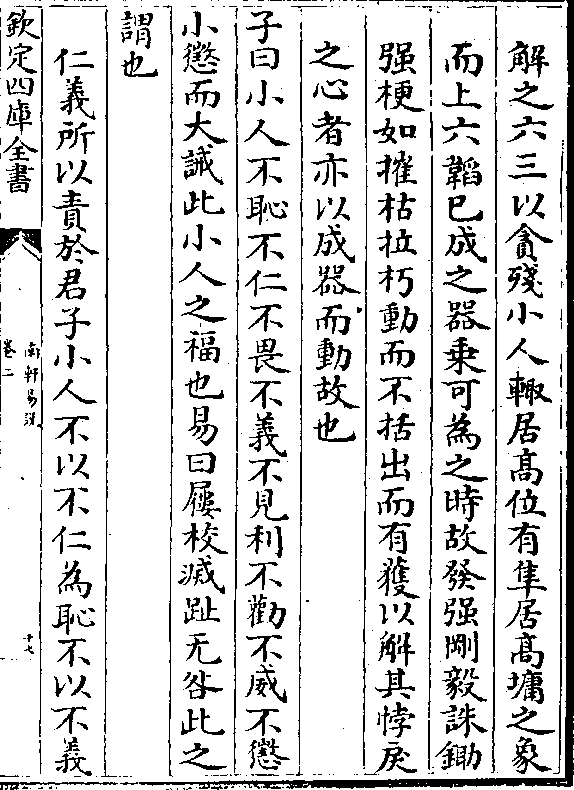 解之六三以貪殘小人輙居髙位有隼居髙墉之象
而上六韜已成之器乗可為之時故發强剛毅誅鋤
强梗如摧枯拉朽動而不括出而有獲以解其悖戾
之心者亦以成器而動故也
子曰小人不恥不仁不畏不義不見利不勸不威不懲
小懲而大誡此小人之福也易曰屨校滅趾无咎此之
謂也
仁義所以責於君子小人不以不仁為恥不以不義
欽定四庫全書
南軒易説
卷二
十七